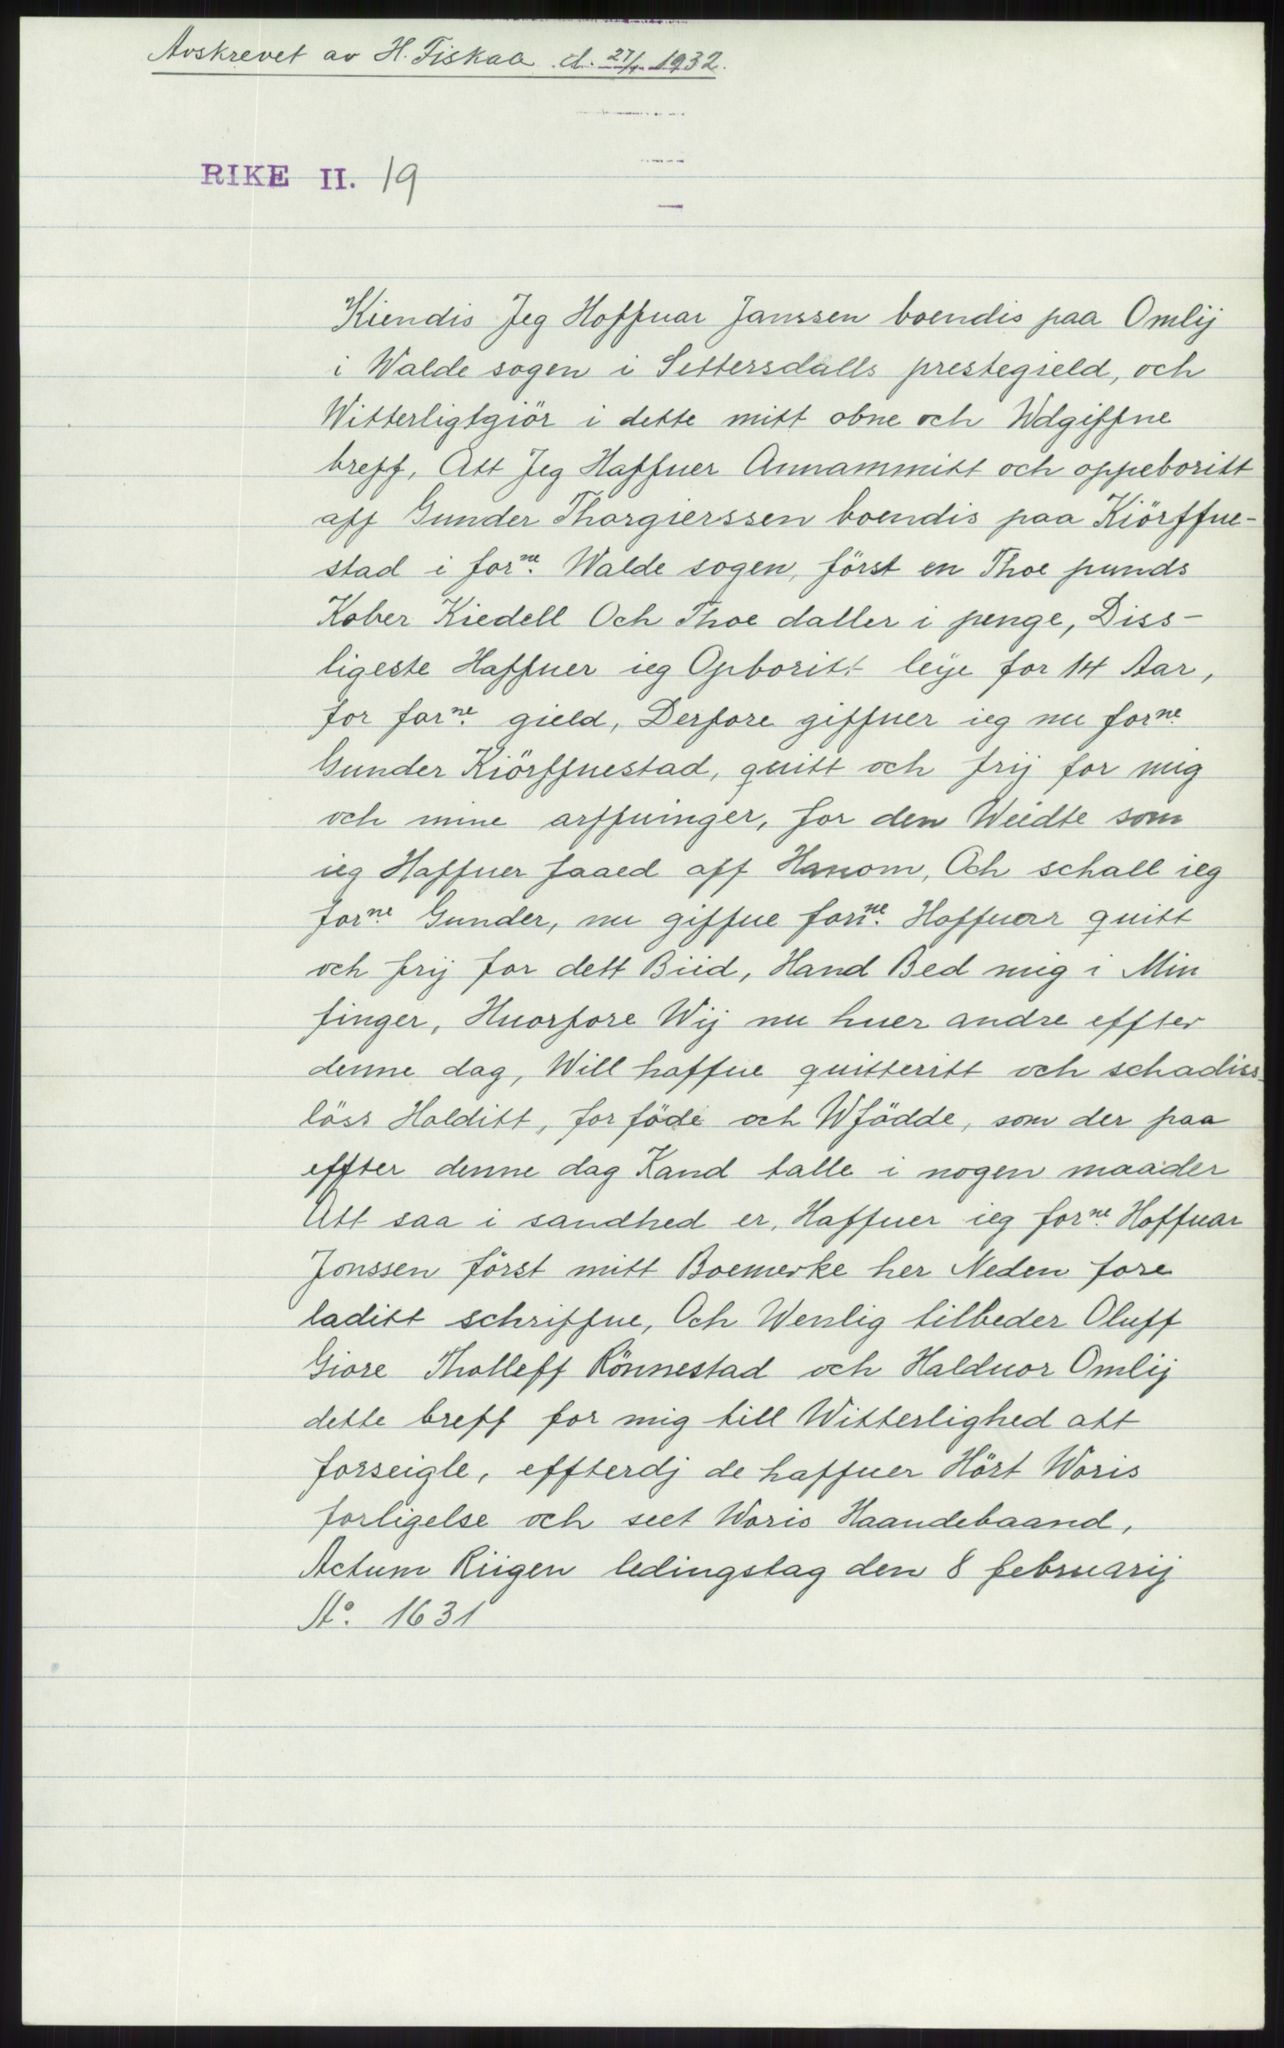 Avskrevet av H. Fiskaa d. 27/4 1932.
RIKE II. 19
Kiendis Jeg Hoffuar Janssen boendis paa Omlij
i Walde sogen i Settersdalls prestegield, och
Witterligtgiör i dette mitt obne och Wdgiffne
breff, Att Jeg Haffuer Annammitt och oppeboritt
aff Gunder Thorgierssen boendis paa Kiörffue-
stad i forne. Walde sogen, först en Thoe punds
Kober Kiedell Och Thoe daller i penge, Diss-
ligeste Haffuer ieg Opboritt leije for 14 Aar,
for forne. gield, Derfore giffuer ieg nu forne.
Gunder Kiörffuestad, quitt och frij for mig
och mine arffuinger, for den Weedte som
ieg Haffuer faaed aff Hanom, Och schall ieg
forne Gunder, nu giffue forne. Hoffuar quitt
och frij for dett Biid, Hand Bed mig i Min
finger, Huorfore Wij nu huer andre effter
denne dag, Will haffue quitteritt och schadiss-
löss Holditt, for föde och Wfödde, som der paa
effter denne dag Kand talle i nogen maader
Att saa i sandhed er, Haffuer ieg forne. Hoffuar
Jonssen först mitt Boemerke her Neden fore
laditt schriffue, Och Wenlig tilbeder Oluff
Giore Tholleff Rönnestad och Halduor Omlij
dette breff for mig till Witterlighed att
forseigle, effterdj de haffuer Hört Woris
forligelse och seet Woris Haandebaand,
Actum Riigen ledingstag den 8 februarij
Ao. 1631